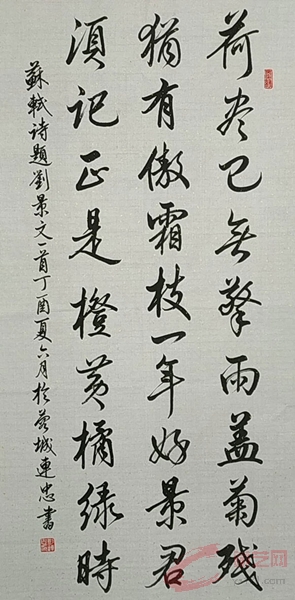 荷尽已无擎雨盖菊残
犹有傲霜枝一年好景君
须记正是橙黄橘绿時
蘇軾诗题劉景文一首丁酉夏六月於蓉城連忠書